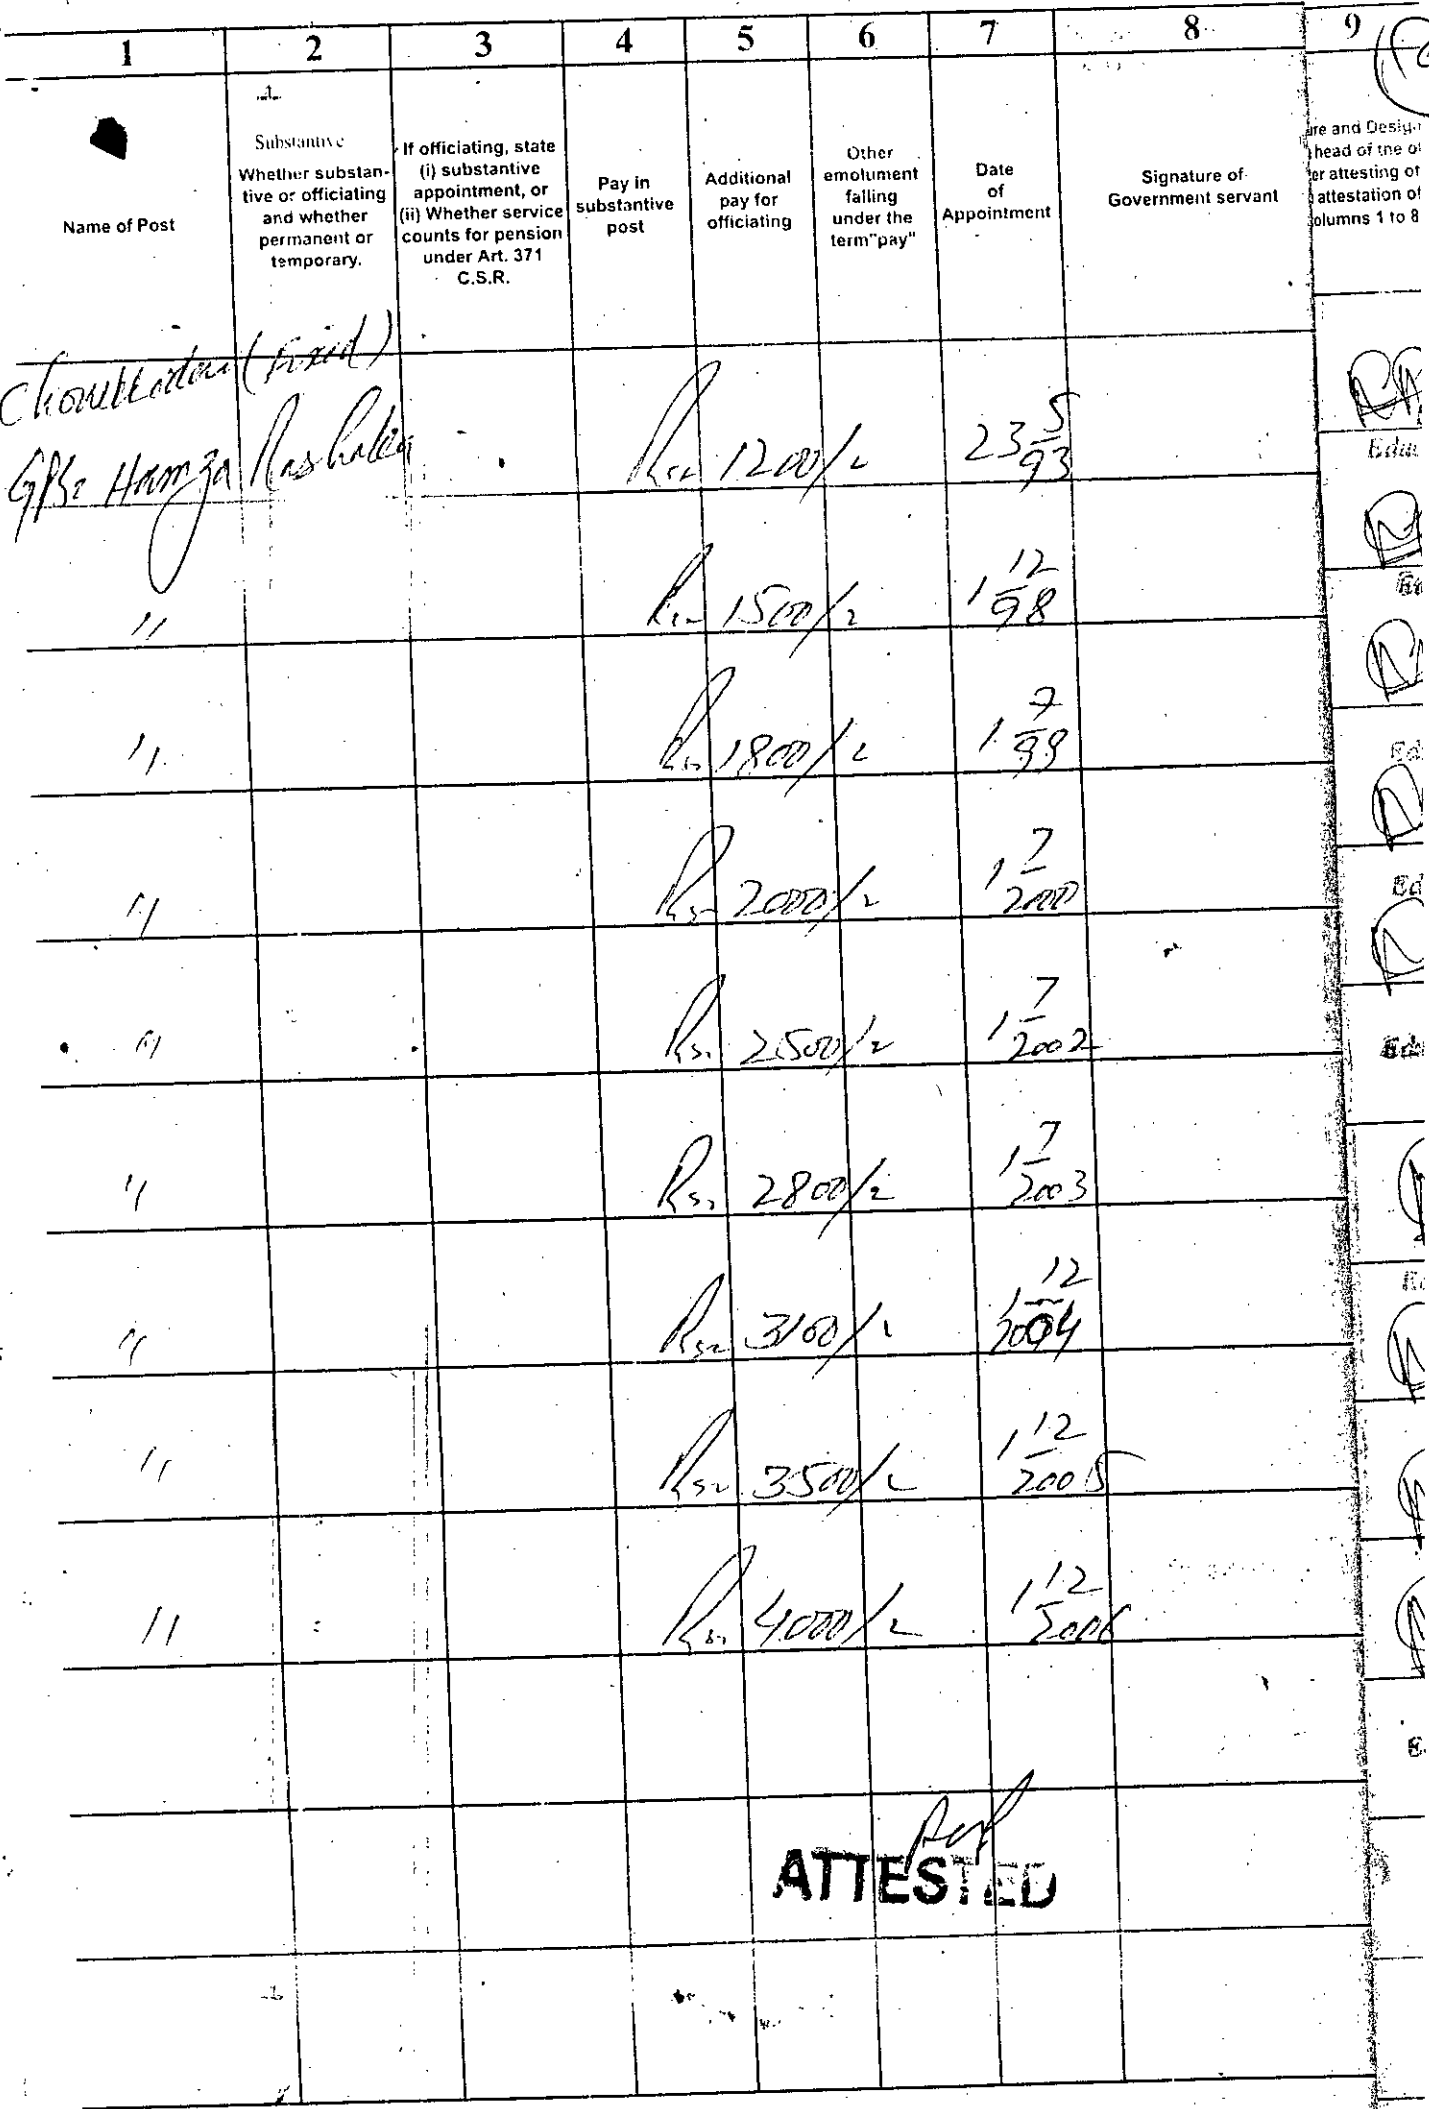 1 2 3 4 5 6 7 8 9
Name of Post
Substantive
Whether substan-
tive or officiating
and whether
permanent or
temporary.
If officiating, state
(i) substantive
appointment, or
(ii) Whether service
counts for pension
under Art. 371
C.S.R.
Pay in
substantive
post
Additional
pay for
officiating
Other
emolument
falling
under the
term"pay"
Date
of
Appointment
Signature of
Government servant
ure and Desig
head of the of
er attesting of
attestation of
olumns 1 to 8
(Fixed)
GPS: Hamza Rs. 1200/- 23 5/93
" Rs. 1500/- 1 12/98
" Rs. 1800/- 1 7/99
" Rs. 2000/- 1 7/2000
" Rs. 2500/- 1 7/2002
" Rs. 2800/- 1 7/2003
" Rs. 3100/- 1 12/2004
" Rs. 3500/- 1 12/2005
" Rs. 4000/- 1 12/2006
ATTESTED